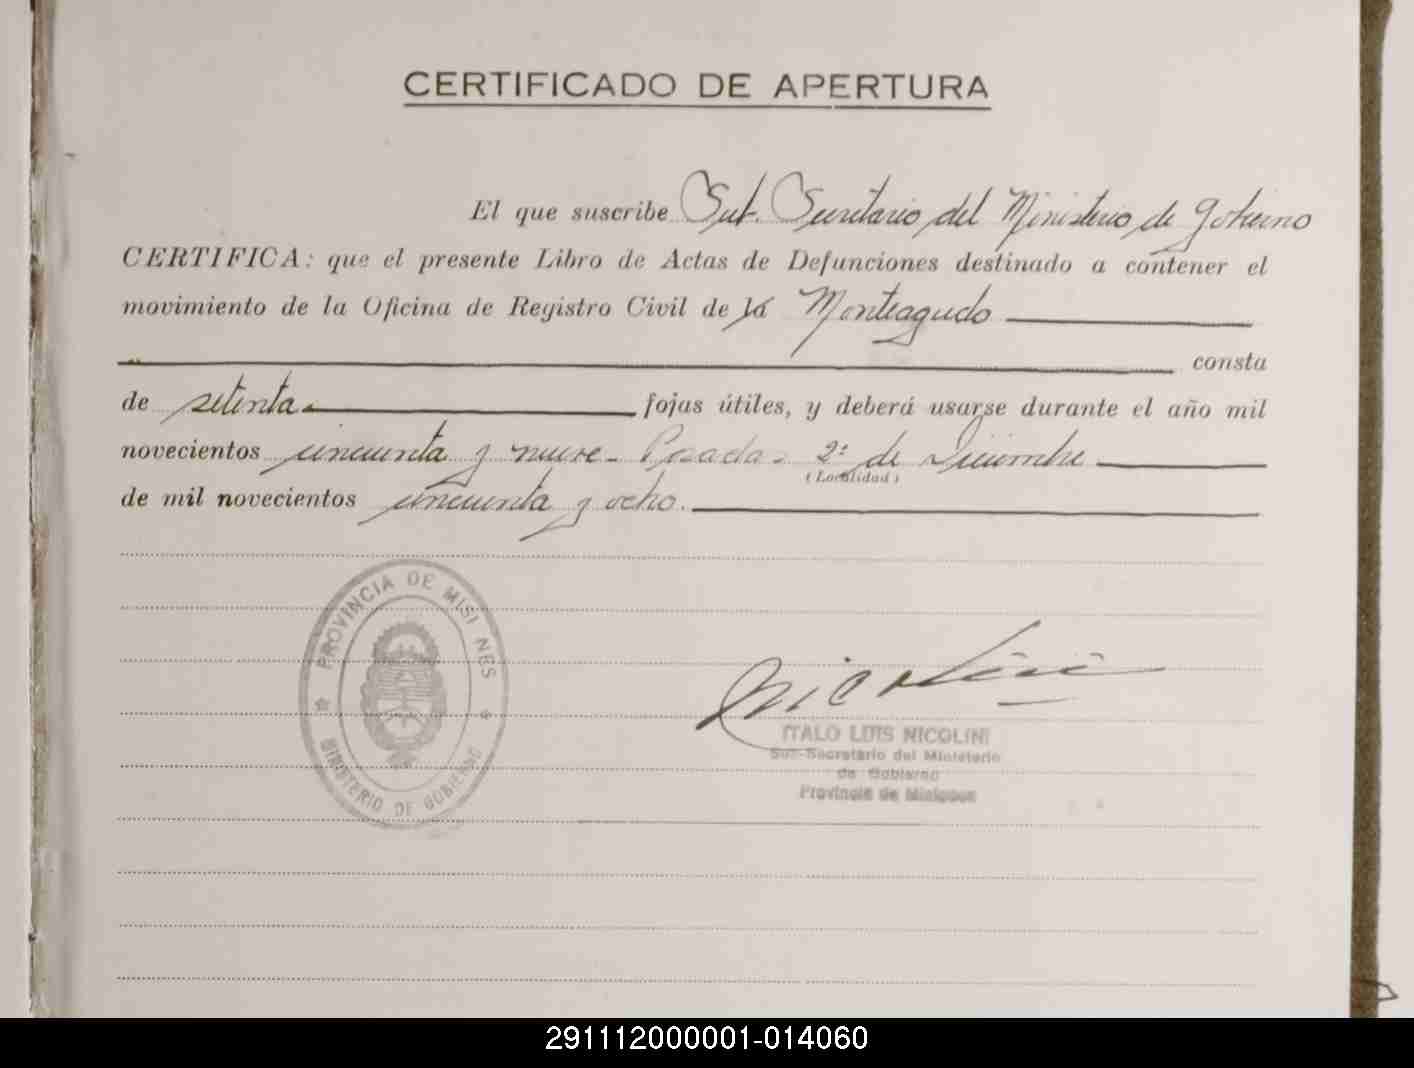 CERTIFICADO DE APERTURA
El que suscribe Sub. Secretario del Ministerio de Gobierno
CERTIFICA: que el presente Libro de Actas de Defunciones destinado a contener el
movimiento de la Oficina de Registro Civil de la Monteagudo
consta
de setenta fojas útiles, y deberá usarse durante el año mil
novecientos cincuenta y nueve - Posadas 2: de Diciembre
(Localidad)
de mil novecientos cincuenta y ocho.
PROVINCIA DE MISI NES
MINISTERIO DE GOBIERNO
Nicolini
ITALO LUIS NICOLINI
Sub-Secretario del Ministerio
de Gobierno
Provincia de Misiones
291112000001-014060